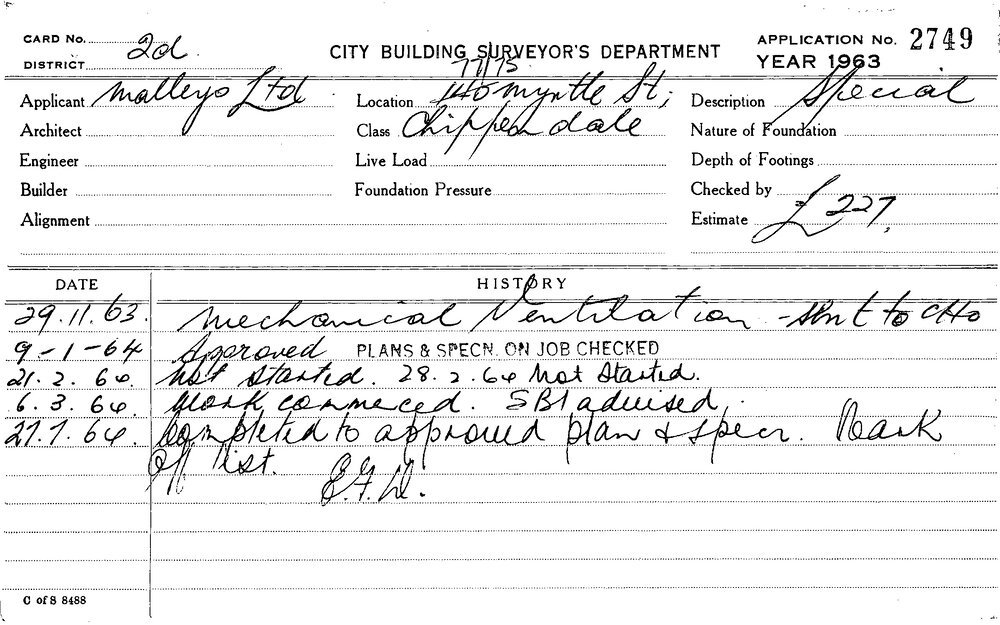 CARD No. CITY BUILDING SURVEYOR'S DEPARTMENT APPLICATION No. 2749
DISTRICT 2d YEAR 1963
Applicant Malleys Ltd Location Myrtle St; Description Special
Architect Class Chippendale Nature of Foundation
Engineer Live Load Depth of Footings
Builder Foundation Pressure Checked by
Alignment Estimate £227.
DATE HISTORY
29.11.63. Mechanical Ventilation - sent to CHO
9-1-64 Approved PLANS & SPECN. ON JOB CHECKED
21.2.64. Not started. 28.2.64 Not Started.
6.3.64. Work commeced. SBI advised.
27.7.64. Completed to approved plan & specn. Mark
off list.
C of S 8488